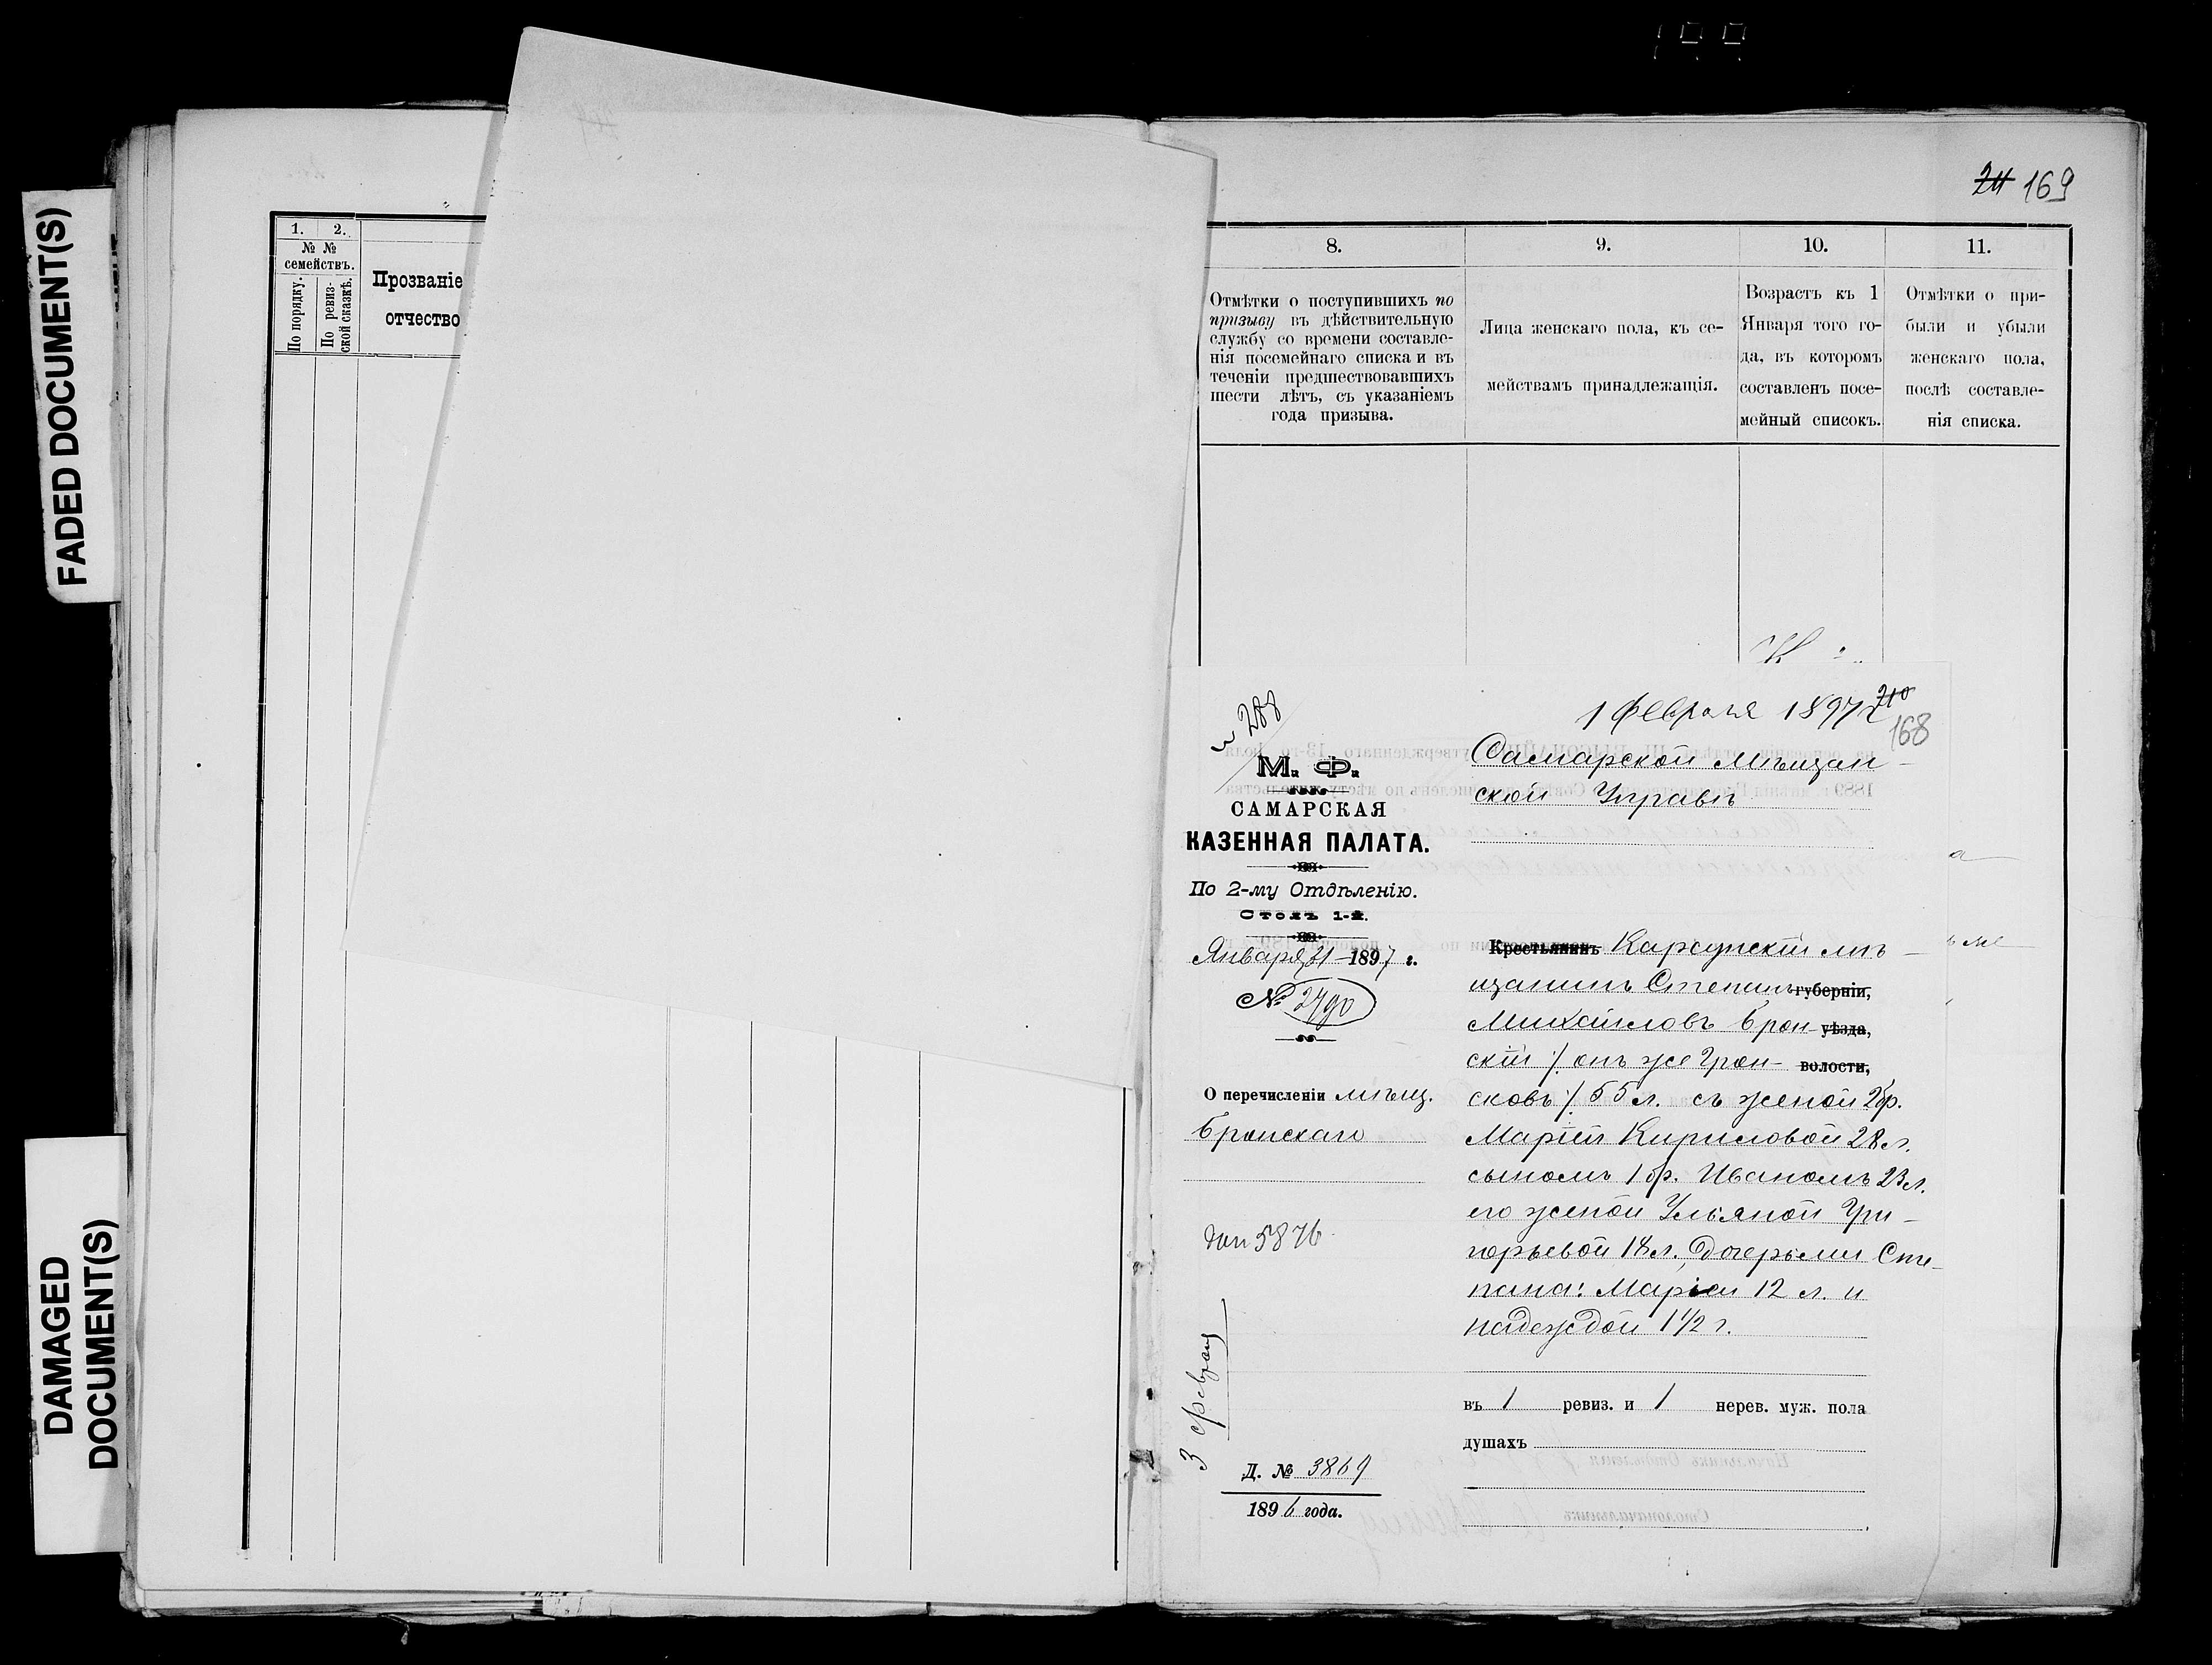 FADED DOCUMENT(S)
DAMAGED
DOCUMENT(S)
1. 2.
№ №
семействъ.
По порядку.
По ревиз-
ской сказкѣ.
Прозваніе
отчество
24 169
8. 9. 10. 11.
Отмѣтки о поступившихъ по
призыву въ дѣйствительную
службу со времени составле-
нія посемейнаго списка и въ
теченіи предшествовавшихъ
шести лѣтъ, съ указаніемъ
года призыва.
Лица женскаго пола, къ се-
мействамъ принадлежащія.
Возрастъ къ 1
Января того го-
да, въ которомъ
составленъ посе-
мейный списокъ.
Отмѣтки о при-
были и убыли
женскаго пола,
послѣ составле-
нія списка.
288
М. Ф.
САМАРСКАЯ
КАЗЕННАЯ ПАЛАТА.
По 2-му Отдѣленію.
Столъ 1-й.
Января 31 1897 г.
№ 2790
О перечисленіи мѣщ.
Бронскаго
5876
3 февраля
Д. № 3869
1896 года.
1 февраля 1897 г.
210
168
Самарской мѣщан-
ской Управѣ
Крестьянинъ Карсунскій мѣ-
щанинъ Степанъ губерніи,
Михайловъ Брон- уѣзда,
скій /. онъ же Грон- волости,
сковъ /. 55 л. съ женой 2 бр.
Маріей Кириловой 28 л.
сыномъ 1 бр. Иваномъ 23 л.
его женой Ульяной Гри-
горьевой 18 л., дочерьми Сте-
пана: Маріей 12 л. и
Надеждой 1 1/2 г.
въ 1 ревиз. и 1 нерев. муж. пола
душахъ